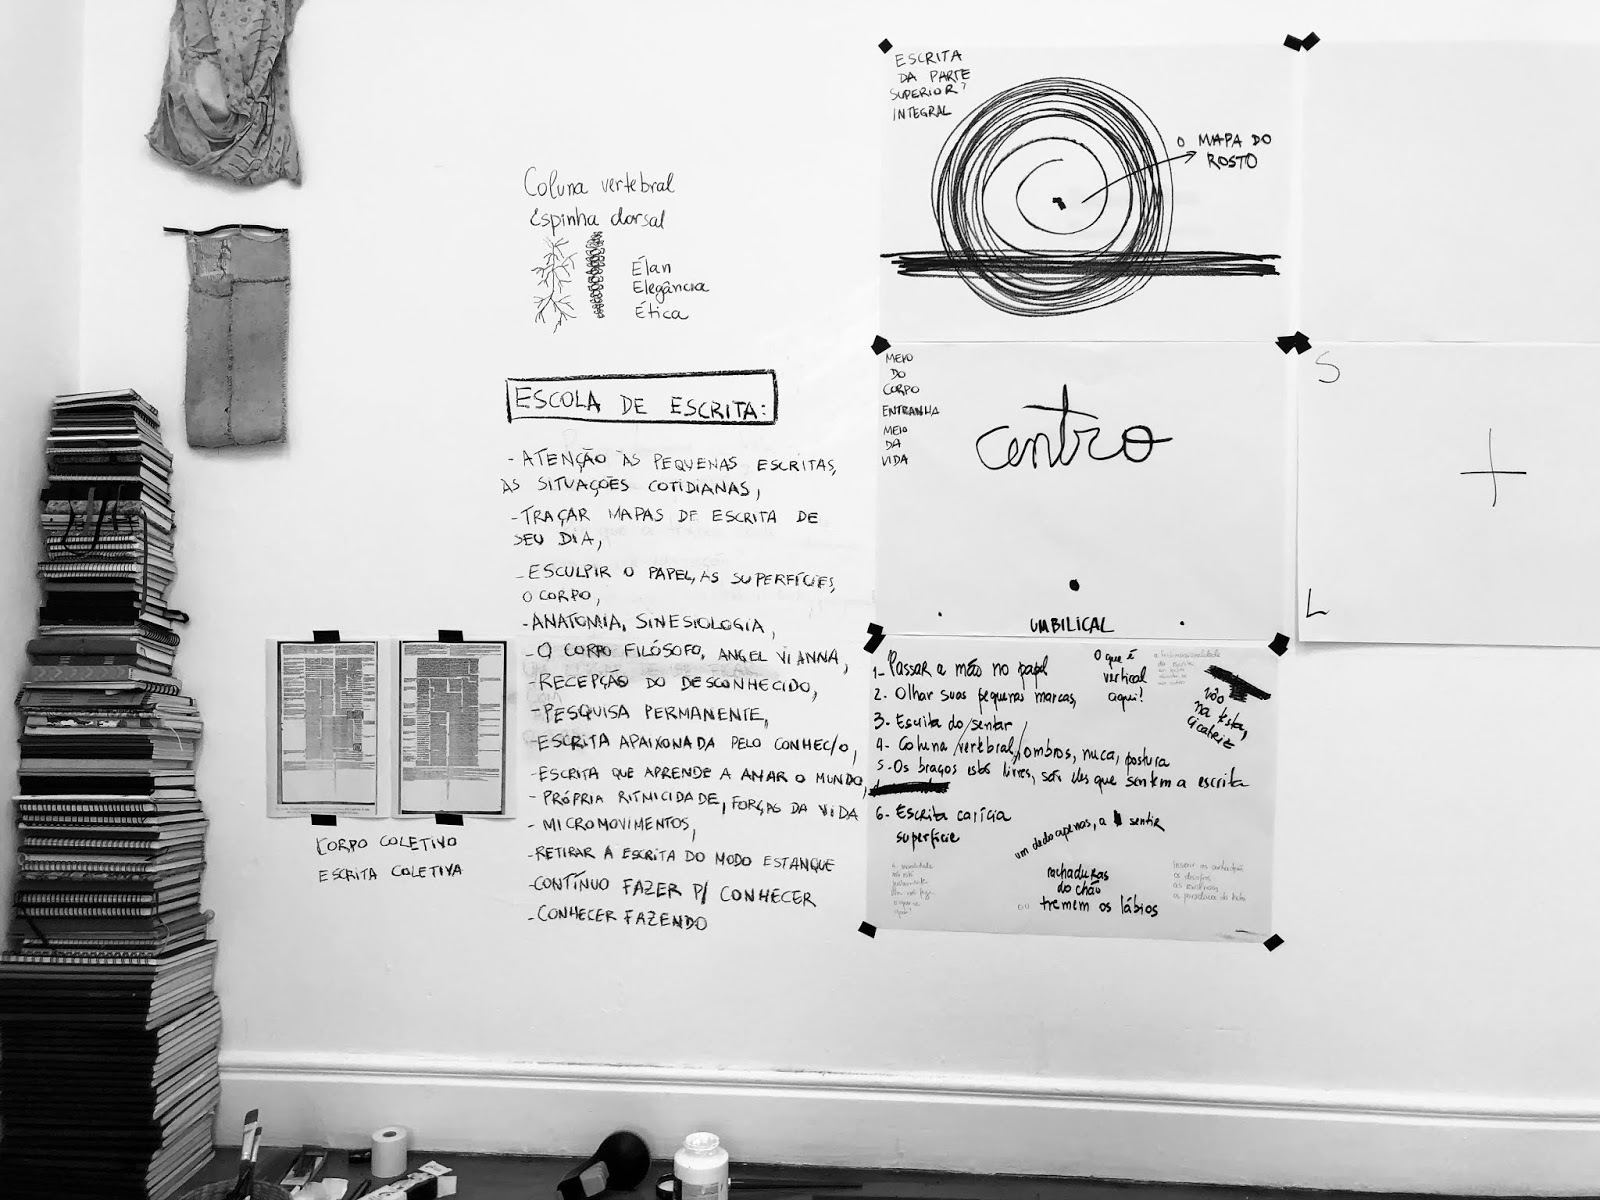 Coluna vertebral
Espinha dorsal
Élan
Elegância
Ética
ESCOLA DE ESCRITA:
- ATENÇÃO ÀS PEQUENAS ESCRITAS,
ÀS SITUAÇÕES COTIDIANAS,
- TRAÇAR MAPAS DE ESCRITA DE
SEU DIA,
- ESCULPIR O PAPEL, AS SUPERFÍCIES,
O CORPO,
- ANATOMIA, SINESIOLOGIA,
- O CORPO FILÓSOFO, ANGEL VIANNA,
- RECEPÇÃO DO DESCONHECIDO,
- PESQUISA PERMANENTE,
- ESCRITA APAIXONADA PELO CONHEC/O,
- ESCRITA QUE APRENDE A AMAR O MUNDO,
- PRÓPRIA RITMICIDADE, FORÇAS DA VIDA
- MICROMOVIMENTOS,
- RETIRAR A ESCRITA DO MODO ESTANQUE
- CONTÍNUO FAZER P/ CONHECER
- CONHECER FAZENDO
CORPO COLETIVO
ESCRITA COLETIVA
ESCRITA
DA PARTE
SUPERIOR?
INTEGRAL
O MAPA DO
ROSTO
MEIO
DO
CORPO
ENTRANHA
MEIO
DA
VIDA
centro
UMBILICAL
S
L
1- Passar a mão no papel
2- Olhar suas pequenas marcas,
3- Escrita do sentar
4- Coluna vertebral, ombros, nuca, postura
5- Os braços estão livres, são eles que sentem a escrita
6- Escrita carícia
superfície
O que é
vertical
aqui?
vão
na testa,
cicatriz
um dedo apenas, a sentir
rachaduras
do chão
ou tremem os lábios